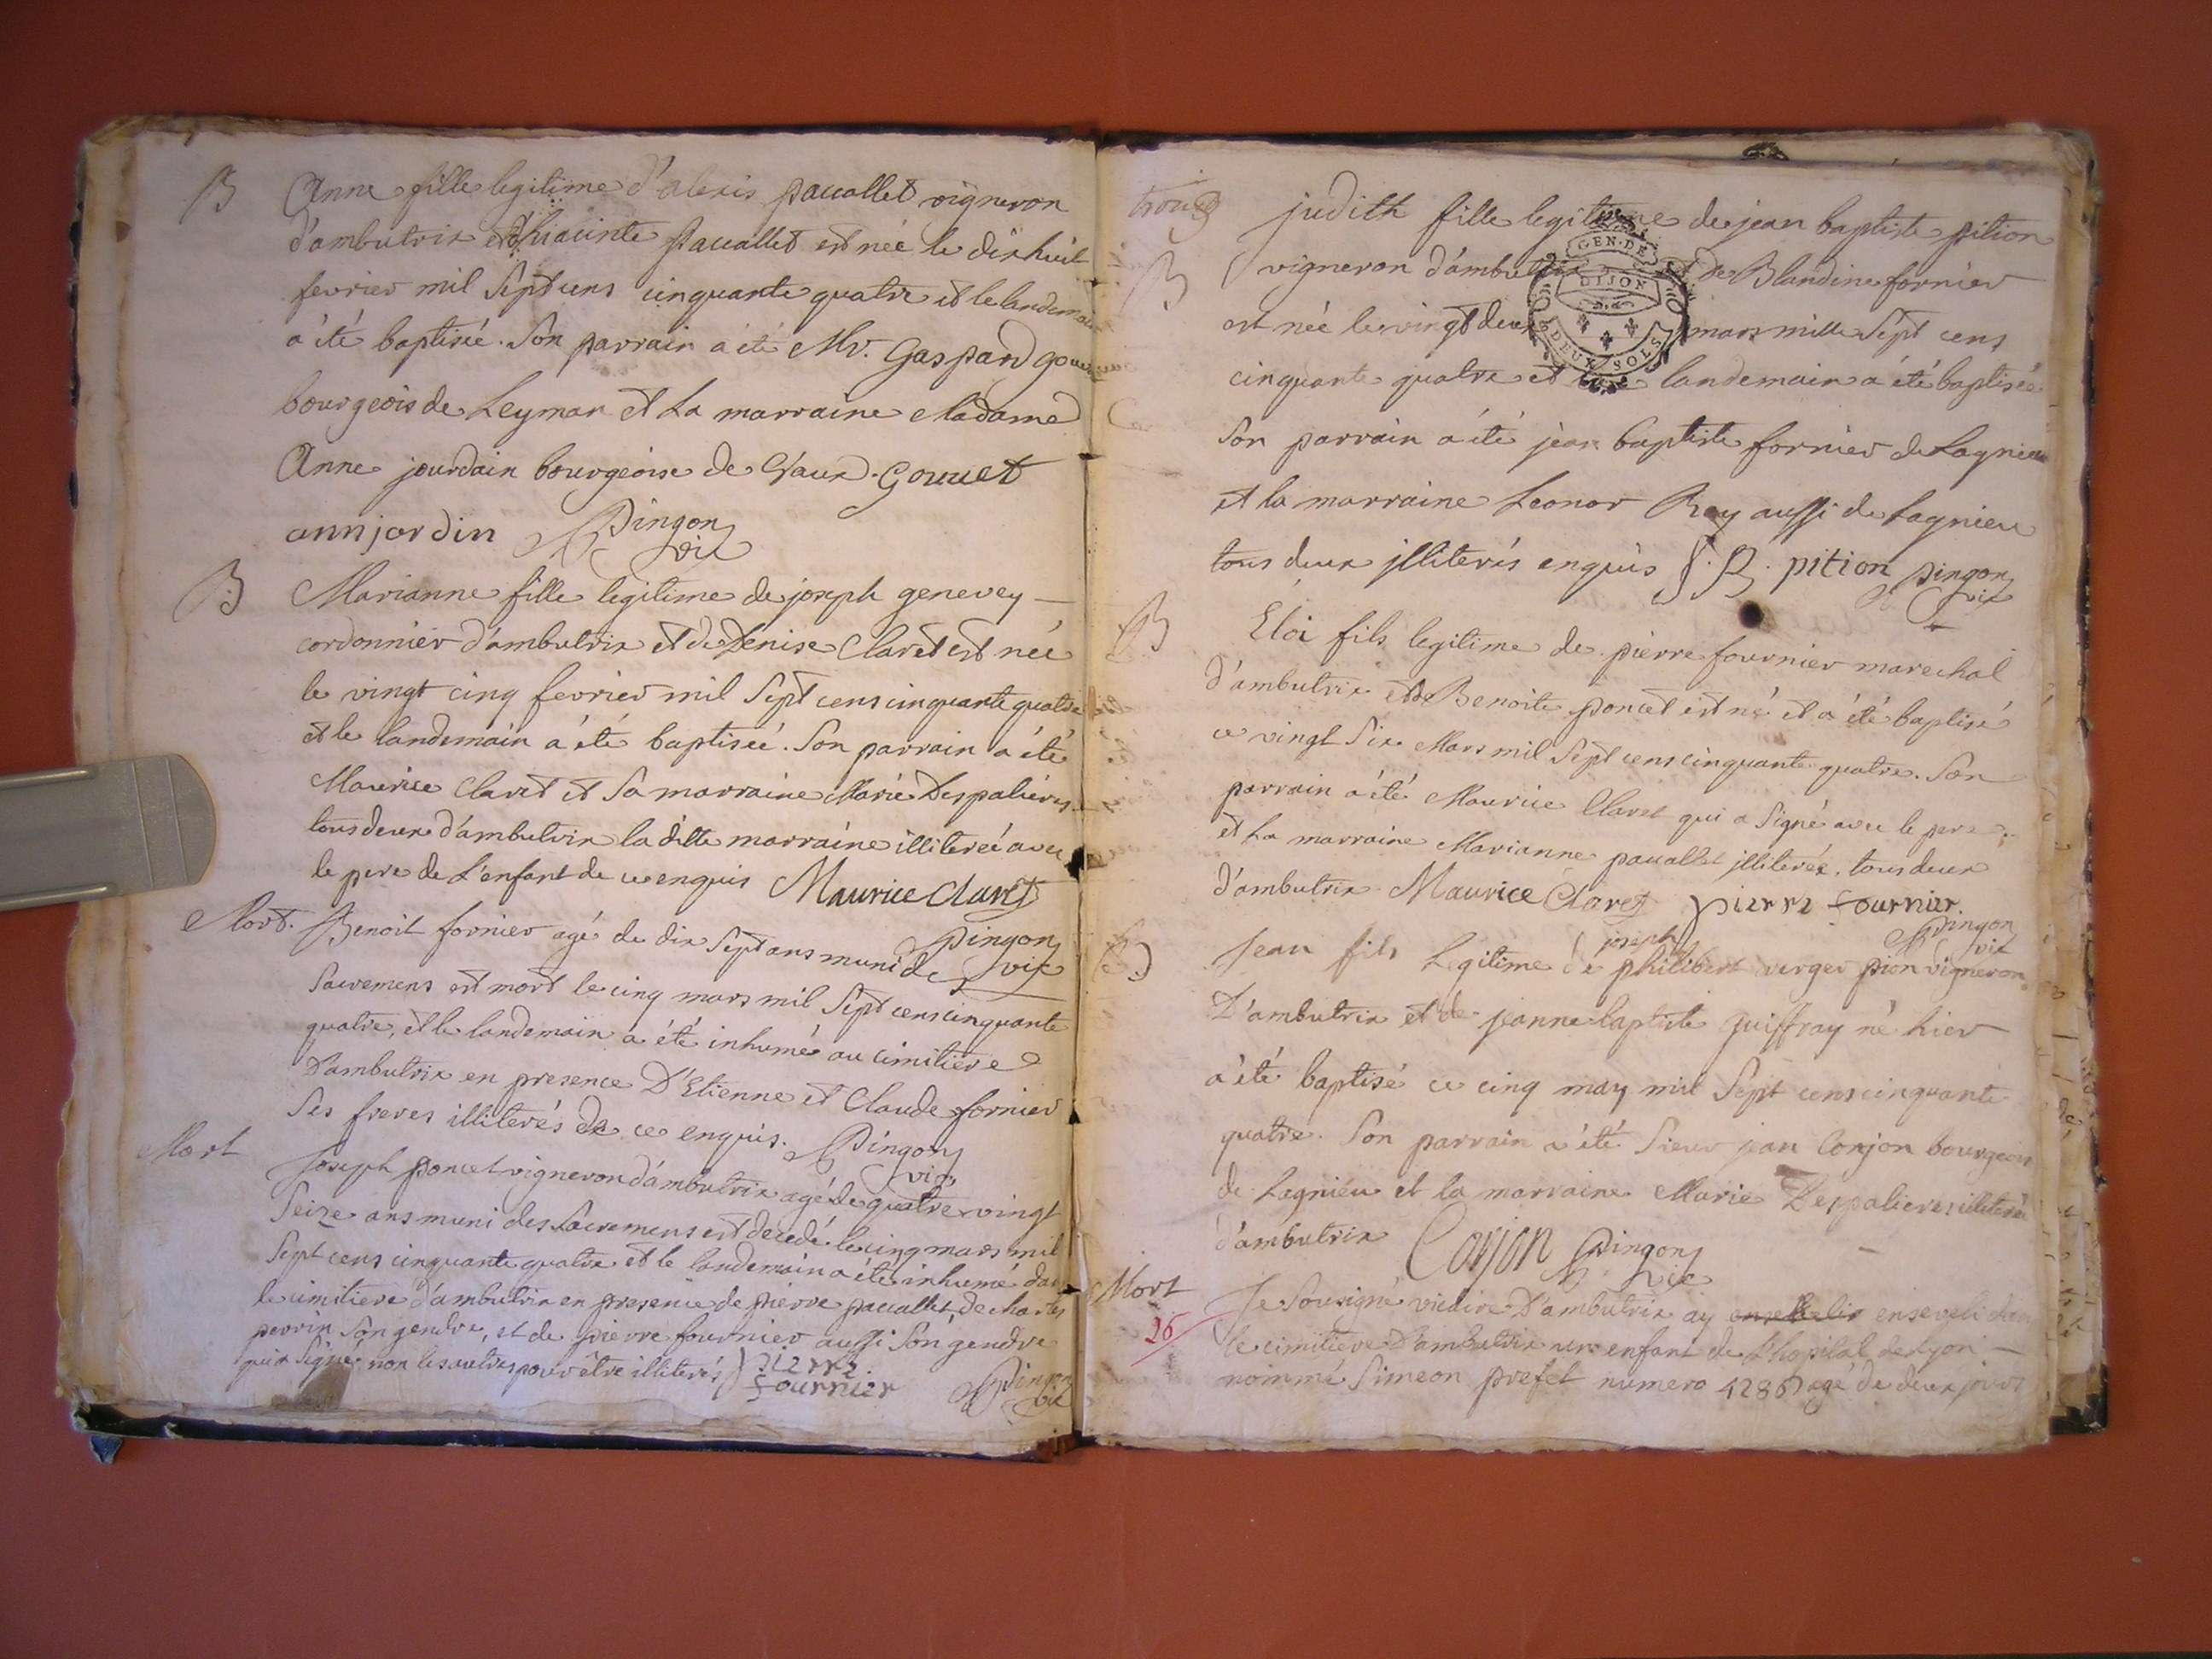 B
Anne fille legitime d'alexis pauallet vigneron
d'ambutrix et d'hiacinte pauallet est née le dixhuit
fevrier mil sept cens cinquante quatre et le landemain
a été baptiseé. Son parrain a été Mr. Gaspard
bourgeois de Leyman et la marraine Madame
Anne jourdain bourgeoise de Vaux. Gouuet
ann jordin Dingon vic
B
Marianne fille legitime de joseph genevey
cordonnier d'ambutrix et de Denise Claret est neé
le vingt cinq fevrier mil sept cens cinquante quatre
et le landemain a été baptiseé. Son parrain a été
Maurice Claret et sa marraine Marie Despalieres
tous deux d'ambutrix la ditte marraine illitereé avec
le pere de L'enfant de ce enquis Maurice Claret
Dingon vic
Mort. Benoit fornier agé de dix sept ans muni de
sacremens est mort le cinq mars mil sept cens cinquante
quatre, et le landemain a été inhumé au cimitiere
D'ambutrix en presence D'Etienne et Claude fornier
ses freres illiterés de ce enquis. Dingon vic
Mort
Joseph poncet vigneron d'ambutrix agé de quatre vingt
seize ans muni des sacremens est decedé le cinq mars mil
sept cens cinquante quatre et le landemain a été inhumé dans
le cimitiere d'ambutrix en presence de pierre pauallet, de charles
perrin son gendre, et de pierre fournier aussi son gendre
qui a signé non les autres pour être illiterés pierre
fournier Dingon vic
trois
B
judith fille legitime de jean baptiste pition
vigneron d'ambutrix et de Blandine fornier
GEN. DE
DIJON
DEUX SOLS
est née le vingt deux mars mille sept cens
cinquante quatre et le landemain a été baptiseé
son parrain a été jean baptiste fornier de Lagnieu
et la marraine Leonor Rey aussi de Lagnieu
tous deux jlliterés enquis J. B. pition Dingon vic
B
Eloi fils legitime de pierre fournier marechal
d'ambutrix et de Benoite poncet est né et a été baptisé
ce vingt six Mars mil sept cens cinquante quatre. Son
parrain a été Maurice Claret qui a signé avec le pere
et La marraine Marianne pauallet jlliterée, tous deux
d'ambutrix Maurice Claret pierre fournier.
Dingon vic
B
joseph
Jean fils Legitime de philibert verger pion vigneron
D'ambutrix et de jeanne baptiste guiffray né hier
a été baptisé ce cinq may mil sept cens cinquante
quatre. Son parrain a été Sieur jean Conjon bourgeois
de Lagnieu et la marraine Marie Despalieres illitereé
d'ambutrix Conjon Dingon vic
Mort
26
Je sousigné vicaire D'ambutrix ay ensevelir enseveli dans
le cimitiere D'ambutrix un enfant de L'hopital de Lyon
nommé Simeon prefet numero 4286 agé de deux jours